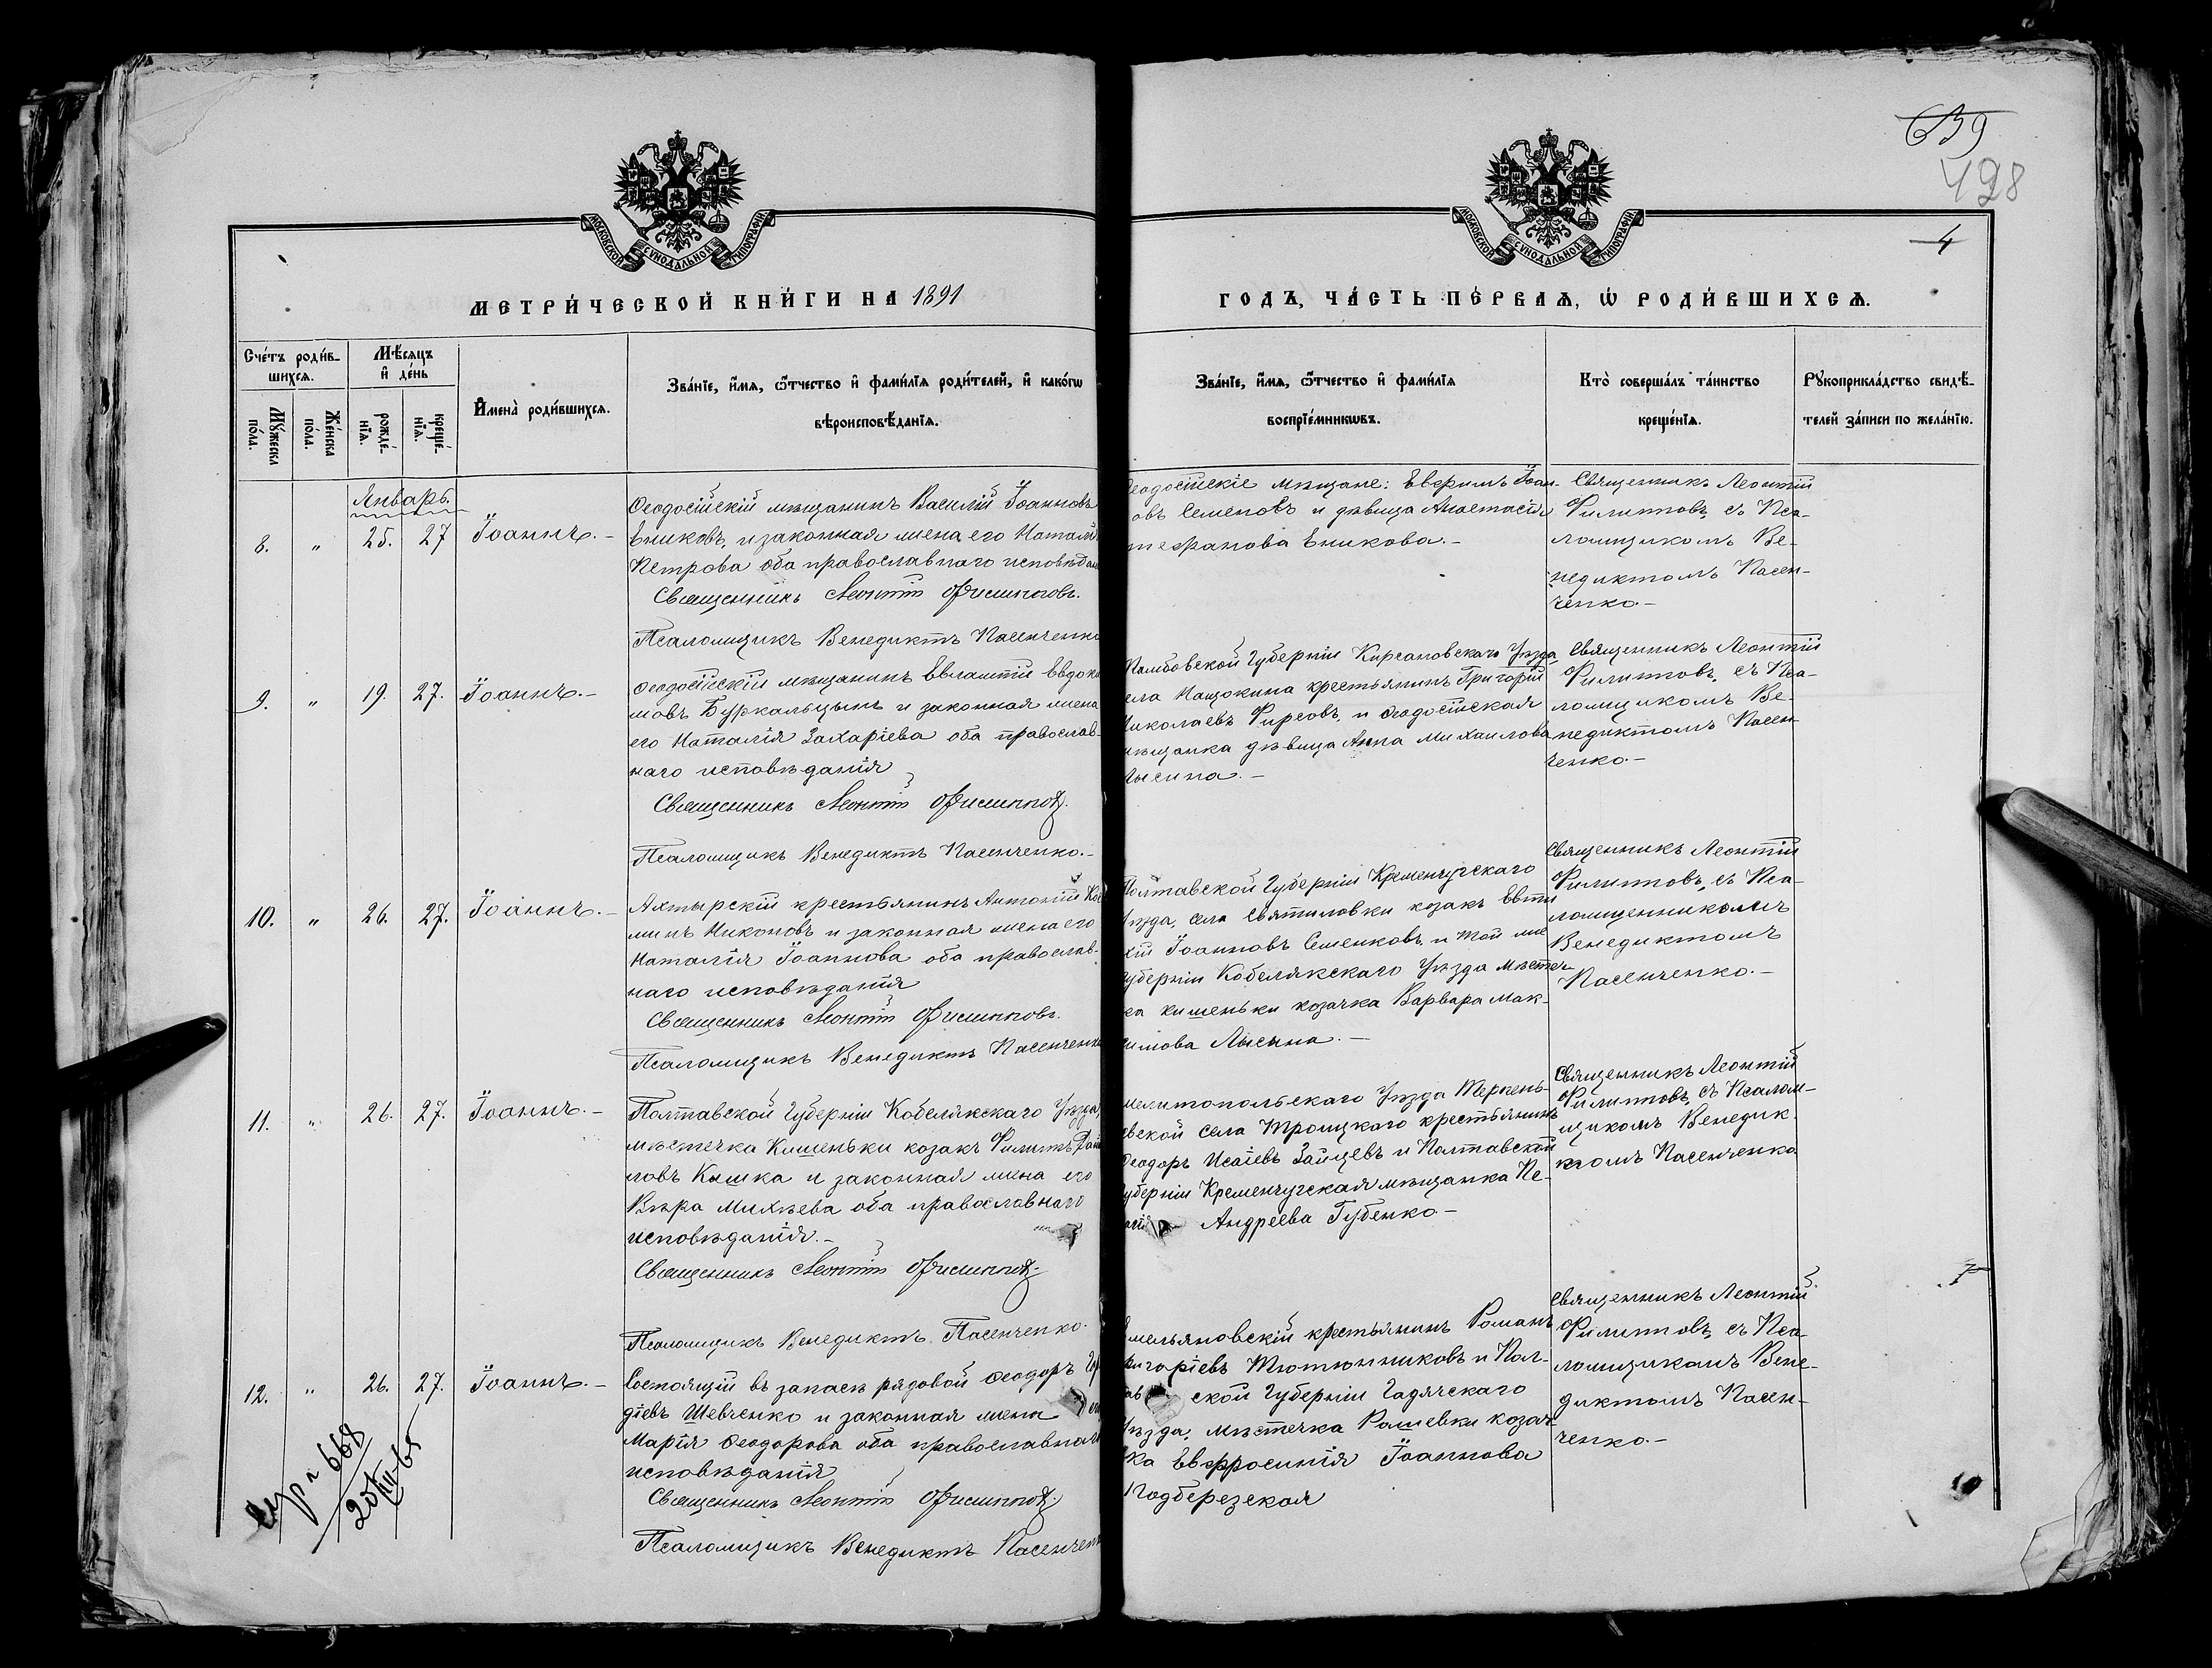 639
428
4
МОСКОВСКОЙ СѴНОДАЛЬНОЙ ТИПОГРАФІИ
МОСКОВСКОЙ СѴНОДАЛЬНОЙ ТИПОГРАФІИ
МЕТРИ́ЧЕСКОЙ КНИ́ГИ НА 1891
ГОДЪ, ЧА́СТЬ ПЕ́РВАѦ, Ѡ҆ РОДИ́ВШИХСѦ.
Сче́тъ роди́в-
шихсѧ.
Мѣ́сѧцъ
и҆ де́нь
Мꙋ́жеска
по́ла.
Же́нска
по́ла.
рожде́-
нїѧ.
креще́-
нїѧ.
И҆мена̀ роди́вшихсѧ.
Зва́нїе, и҆́мѧ, ѻ҆́тчество и҆ фами́лїѧ роди́телей, и҆ како́гѡ
вѣроисповѣ́данїѧ.
Зва́нїе, и҆́мѧ, ѻ҆́тчество и҆ фами́лїѧ
воспрїе́мникѡвъ.
Кто̀ соверша́лъ та́инство
креще́нїѧ.
Рꙋкоприкла́дство свидѣ́-
телей за́писи по жела́нїю.
Январь.
8. " 25. 27 Іоаннъ.-
Ѳеодосійскій мѣщанинъ Василій Іоанновъ
Ениковъ, и законная жена его Наталі
Петрова оба православнаго исповѣдан
Священникъ Леонтій Филипповъ.
Псаломщикъ Венедиктъ Пасенченко
еодосійскіе мѣщане: Еверимъ Іоан-
овъ Семеновъ и дѣвица Анастасія
тефанова Еникова.-
Священникъ Леонтій
Филипповъ, съ Пса-
ломщикомъ Ве-
недиктомъ Пасен-
ченко.-
9. " 19. 27. Іоаннъ.-
Ѳеодосійскій мѣщанинъ Евлампій Евдоки
мовъ Буркальцынъ и законная жена
его Наталія Захаріева оба православ-
наго исповѣданія
Священникъ Леонтій Филипповъ.
Псаломщикъ Венедиктъ Пасенченко.-
Тамбовской Губерніи Кирсановскаго Уѣзда,
ела Нащокина крестьянинъ Григорій
Николаевъ Фирсовъ, и Ѳеодосійская
мѣщанка дѣвица Анна Михаилова
Лысина.-
Священникъ Леонтій
Филипповъ, съ Пса-
ломщикомъ Ве-
недиктомъ Пасен-
ченко.-
10. " 26. 27. Іоаннъ.-
Ахтырскій крестьянинъ Антоній Коз
минъ Никоновъ и законная жена его
Наталія Іоаннова оба православ-
наго исповѣданія
Священникъ Леонтій Филипповъ.
Псаломщикъ Венедиктъ Пасенченко
Полтавской Губерніи Кременчугскаго
Уѣзда, села Святиловки козакъ Евти
хій Іоанновъ Семенковъ, и той же
Губерніи Кобелякскаго Уѣзда мѣстеч-
ка Кишеньки козачка Варвара Мак-
симова Лысина.-
Священникъ Леонтій
Филипповъ, съ Пса-
ломщенникомъ
Венедиктомъ
Пасенченко.-
11. " 26. 27. Іоаннъ.-
Полтавской Губерніи Кобелякскаго Уѣзда,
мѣстечка Кишеньки козакъ Филиппъ Дани
ловъ Кишка и законная жена его
Вѣра Михѣева оба православнаго
исповѣданія.-
Священникъ Леонтій Филипповъ.
Псаломщикъ Венедиктъ Пасенченко.
Мелитопольскаго Уѣзда Терпень-
евской села Троицкаго крестьянинъ
Ѳеодоръ Исаіевъ Зайцевъ и Полтавской
Губерніи Кременчугская мѣщанка Пе-
Андреева Губенко-
Священникъ Леонтій
Филипповъ, съ Псалом-
щикомъ Венедик
томъ Пасенченко
12. " 26. 27. Іоаннъ.-
Состоящій въ запасѣ рядовой Ѳеодоръ
діевъ Шевченко и законная жена
Марія Ѳеодорова оба православнаго
исповѣданія
Священникъ Леонтій Филипповъ.
Псаломщикъ Венедиктъ Пасенчен
Емельяновскій крестьянинъ Романъ
Григоріевъ Тютюнниковъ и Пол-
ской Губерніи Гадячскаго
Уѣзда, мѣстечка Рашевки козач-
ка Евфросинія Іоаннова
Подберезская
Священникъ Леонтій
Филипповъ, съ Пса-
ломщикомъ Вене-
диктомъ Пасен-
ченко.-
668
20/XII-65